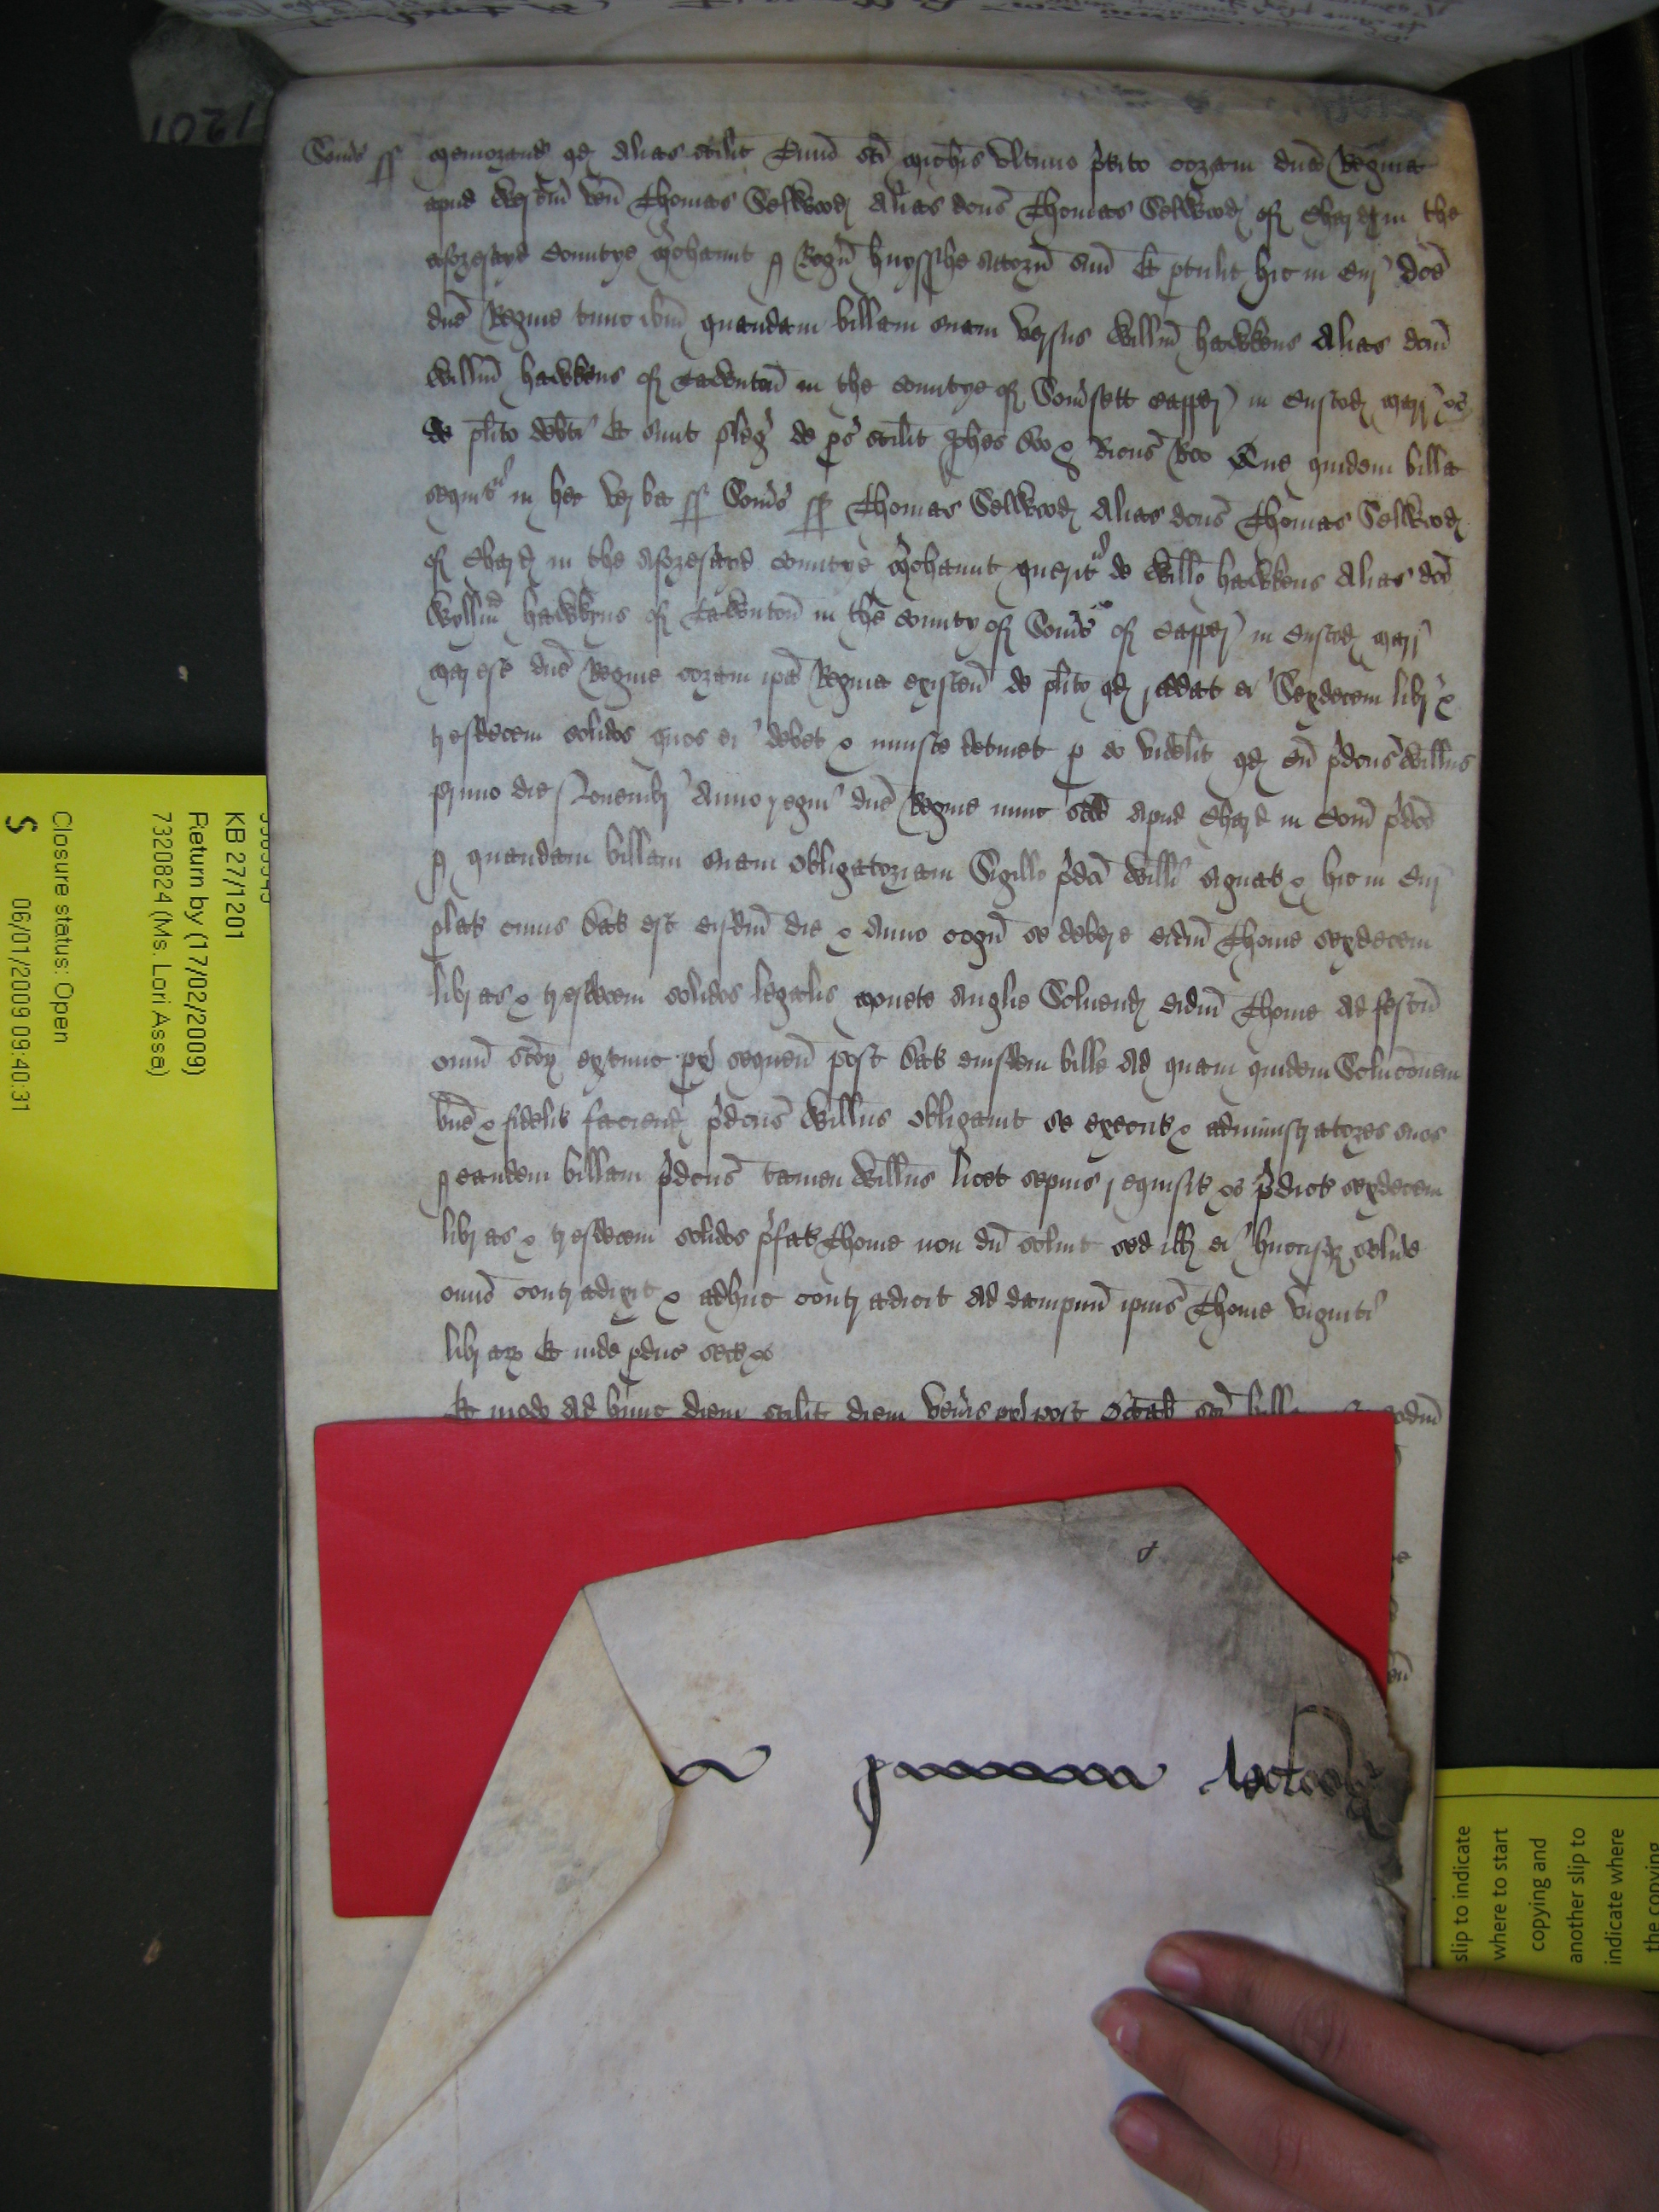 1201
Som̃s ss Memorand qd alias scilt Tmĩo sci Mich̃is ultimo p̃rito coram dñа Regina
apud Westm̃ veñ Thomas Selwood alias dcũs Thomas Selwood of Chard in the
aforesayd countye m̃chaunt p Rog̃m huysshe attorñ suũ Et ptulit hic in Cur̃ dc̃e
dñe Regine tunc ib̃m quandam billam suam versus Willm̃ hawkens alias dc̃m
Willm̃ hawkens of Tawnton in the countye of Som̃sett capper in custod marr̃ &c
de plito deb̃ti Et sunt pleg̃ de ps̃ scilt Joh̃es Doo & Ric̃us Roo Que quidem billa
sequit̃r in hec verba ss Som̃s ss Thomas Selwood alias dcũs Thomas Selwood
of Chard in the aforesayd countye m̃chaunt querit̃r de Will̃o hawkens alias dc̃o
Wyllm̃ hawkyns of Tawnton in the county of Som̃s of capper in custod marr̃
maresc̃ dñe Regine coram ip̃a Regina existeñ de plito qd reddat ei Sexdecem libr̃ &
tresdecem solidos quos ei debet & iniuste detinet p eo videlt qd cũ p̃dcũs Will̃us
primo die Novembr̃ Anno regni dñe Regine nunc scdo apud Chard in Com̃ p̃dc̃o
p quandam billam suam obligatoriam Sigillo p̃dc̃i Will̃i signat & hic in Cur̃
plat cuius dat est eisdm̃ die & anno cogñ se debere eidm̃ Thome sexdecem
libras & tresdecem solidos legalis monete Anglie Solvend eidm̃ Thome ad festũ
om̃iũ sc̃or extunc px̃ sequeñ post dat eiusdem bille ad quam quidem Soluc̃onem
bñe & fidelit faciend p̃dcũs Will̃us obligavit se execut & administratores suos
p eandem billam p̃dcũs tamen Will̃us licet sepius requisit &c p̃dict sexdecem
libras & tresdecem solidos p̃fat Thome non dũ solvit sed ill ei hucusq solṽe
om̃io contradixit & adhuc contradicit ad dampnũ ip̃ius Thome viginti
librar Et inde pduc sect &c
Et modo ad hunc diem scilt diem Ven̂is px̃ post Octab̃ sc̃i
KB 27/1201
Return by (17/02/2009)
7320824 (Ms. Lori Asse)
Closure status: Open
S
06/01/2009 09:40:31
slip to indicate
where to start
copying and
another slip to
indicate where
the copying